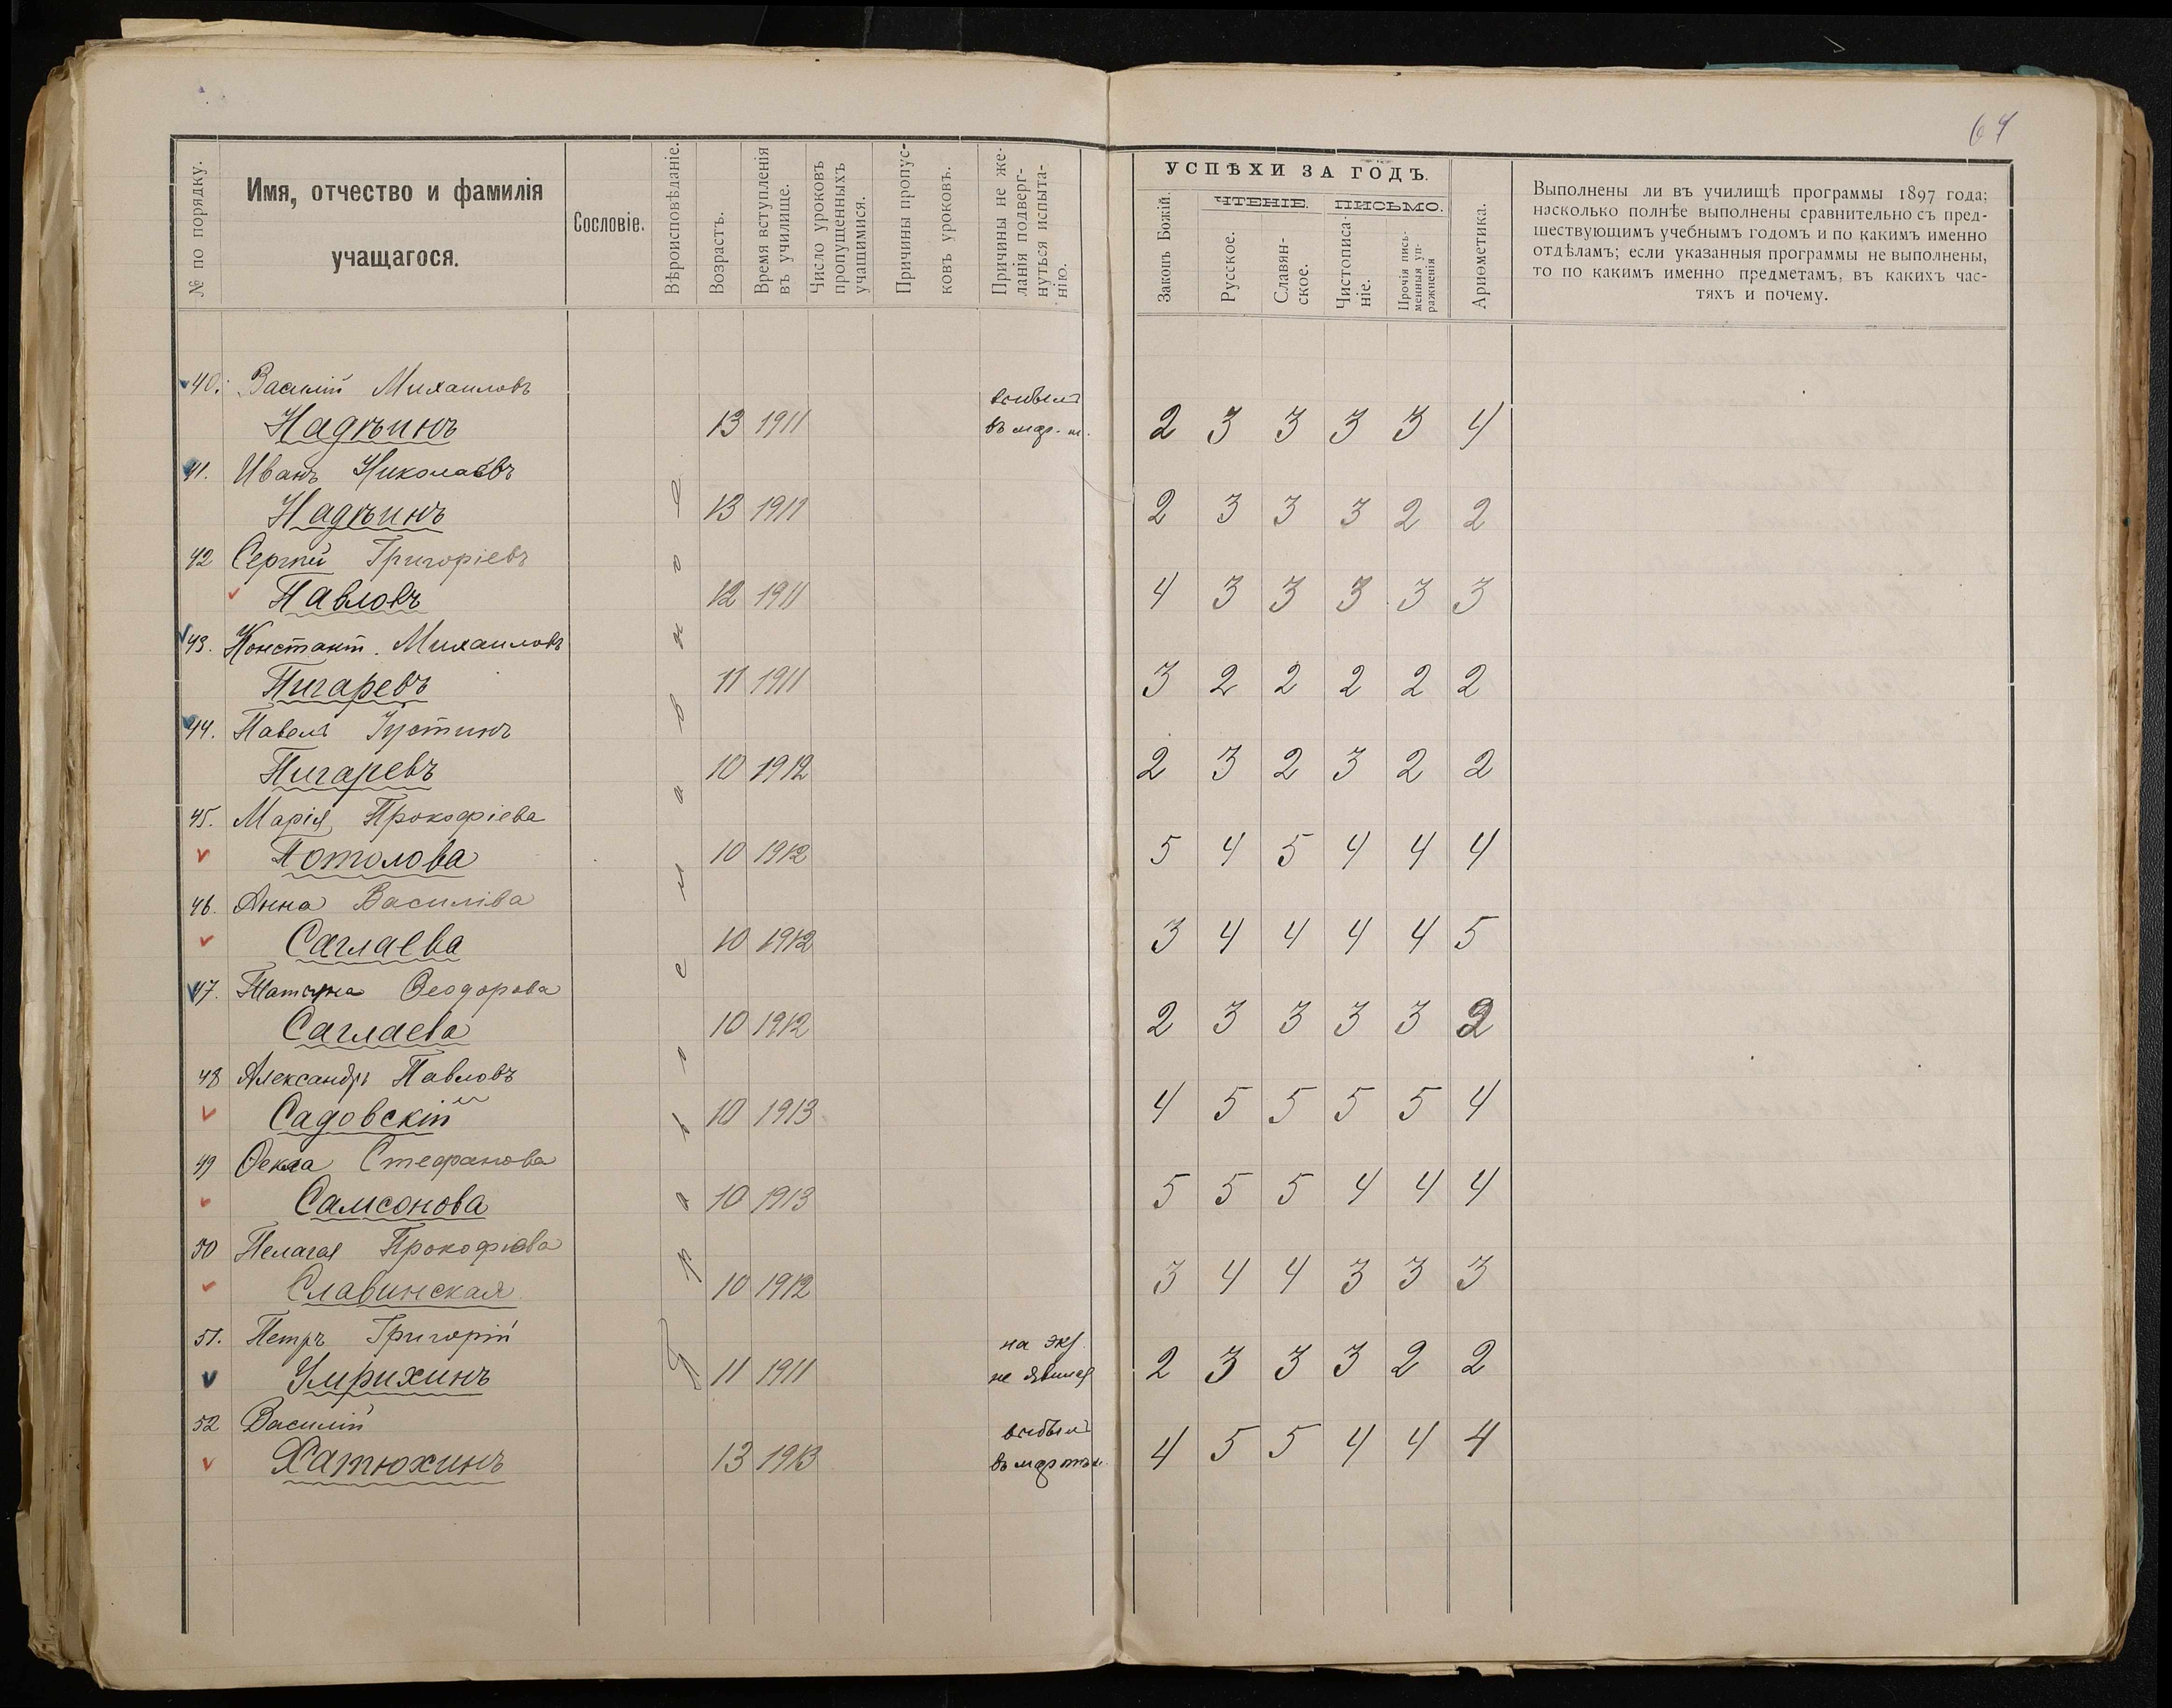 64
№ по порядку.
Имя, отчество и фамилія
учащагося.
Сословіе.
Вѣроисповѣданіе.
Возрастъ.
Время вступленія
въ училище.
Число уроковъ
пропущенныхъ
учащимися.
Причины пропус-
ковъ уроковъ.
Причины не же-
ланія подверг-
нуться испыта-
нію.
УСПѢХИ ЗА ГОДЪ.
Законъ Божій.
ЧТЕНІЕ.
Русское.
Славян-
ское.
ПИСЬМО.
Чистописа-
ніе.
Прочія пись-
менныя уп-
ражненія
Ариѳметика.
Выполнены ли въ училищѣ программы 1897 года;
насколько полнѣе выполнены сравнительно съ пред-
шествующимъ учебнымъ годомъ и по какимъ именно
отдѣламъ; если указанныя программы не выполнены,
то по какимъ именно предметамъ, въ какихъ час-
тяхъ и почему.
православное
40. Василій Михаиловъ
выбылъ
Надѣинъ 13 1911 въ мар. м. 2 3 3 3 3 4
41. Иванъ Николаевъ
Надѣинъ 13 1911 2 3 3 3 2 2
42 Сергѣй Григоріевъ
Павловъ 12 1911 4 3 3 3 3 3
43. Констант. Михаиловъ
Пигаревъ 11 1911 3 2 2 2 2 2
44. Павелъ Іустинъ
Пигаревъ 10 1912 2 3 2 3 2 2
45. Марія Прокофіева
Потолова 10 1912 5 4 5 4 4 4
46. Анна Василіва
Саглаева 10 1912 3 4 4 4 4 5
47. Ѳеодорова
Саглаева 10 1912 2 3 3 3 3 2
48 Александръ Павловъ
Садовскій 10 1913 4 5 5 5 5 4
49 Ѳекла Стефанова
Самсонова 10 1913 5 5 5 4 4 4
50 Пелагея Прокофіева
Славинская 10 1912 3 4 4 3 3 3
51. Петръ Григорій
на экз.
Умрихинъ 11 1911 не явился 2 3 3 3 2 2
52 Василій
выбылъ
Хатюхинъ 13 1913 въ мартѣ м. 4 5 5 4 4 4